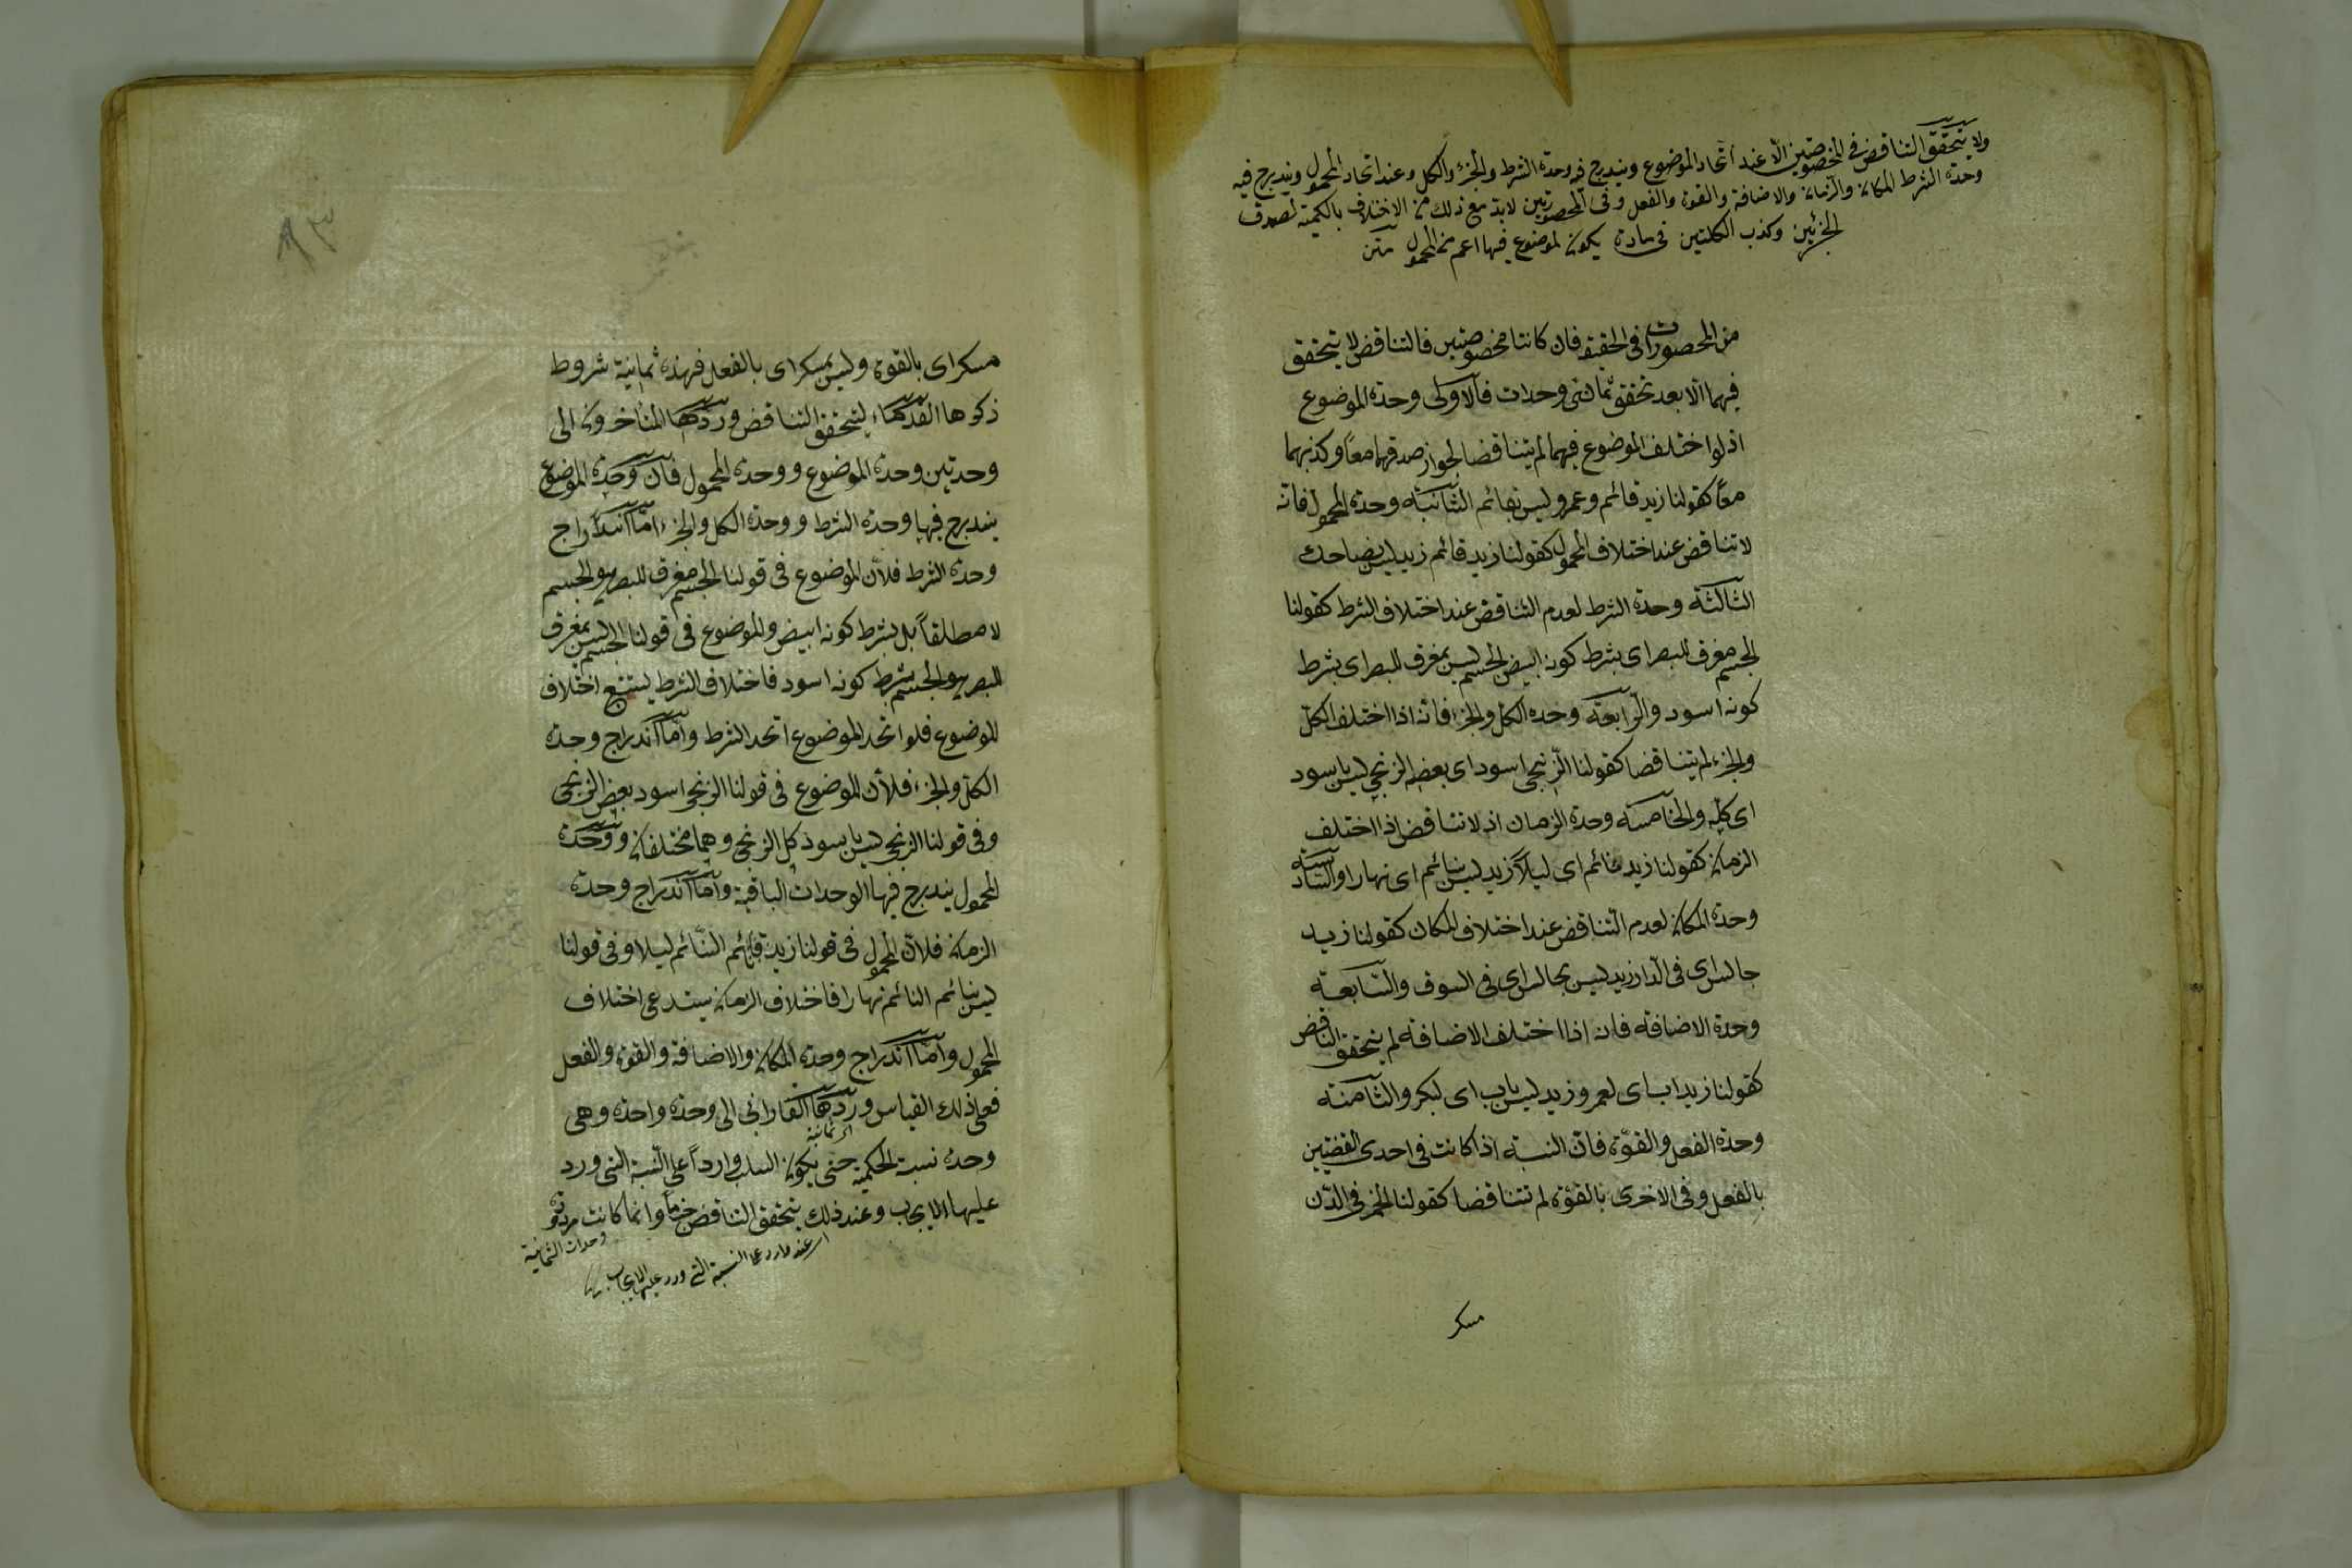 ولا يتحقق التناقض فى المخصوصتين الّا عند اتحاد الموضوع ويندرج فيه وحدة الشرط والجزء والكل وعند اتحاد المحمول ويندرج فيه
وحدة الشرط المكان والزمان والاضافة والقوة والفعل وفى المحصورتين لابد مع ذلك من الاختلاف بالكمية لصدق
الجزئيتين وكذب الكليتين فى مادة يكون الموضوع فيها اعم من المحمول متن
من المحصورات فى الحقيقة فان كانتا مخصوصتين فالتناقض لا يتحقق
فيهما الّا بعد تحقق ثمانى وحدات فالاولى وحدة الموضوع
اذ لو اختلف الموضوع فيهما لم يتناقضا لجواز صدقهما معاً وكذبهما
معاً كقولنا زيد قائم وعمرو ليس بقائم الثانية وحدة المحمول فانه
لا تناقض عند اختلاف المحمول كقولنا زيد قائم زيد ليس بضاحك
الثالثة وحدة الشرط لعدم التناقض عند اختلاف الشرط كقولنا
الجسم مفرق للبصر اى بشرط كونه ابيض الجسم ليس بمفرق للبصر اى بشرط
كونه اسود والرابعة وحدة الكل والجزء فانه اذا اختلف الكل
والجزء لم يتناقضا كقولنا الزنجى اسود اى بعضه الزنجى ليس باسود
اى كله والخامسة وحدة الزمان اذ لا تناقض اذا اختلف
الزمان كقولنا زيد نائم اى ليلاً زيد ليس بنائم اى نهارا والسادسة
وحدة المكان لعدم التناقض عند اختلاف المكان كقولنا زيد
جالس اى فى الدار زيد ليس بجالس اى فى السوق والسابعة
وحدة الاضافة فانه اذا اختلف الاضافة لم يتحقق التناقض
كقولنا زيد اب اى لعمرو زيد ليس باب اى لبكر والثامنة
وحدة الفعل والقوّة فان النسبة اذا كانت فى احدى القضيتين
بالفعل وفى الاخرى بالقوّة لم تتناقضا كقولنا الخمر فى الدّن
مسكر
٨٣
مسكر اى بالقوة وليس بمسكر اى بالفعل فهذه ثمانية شروط
ذكروها القدماء ليتحقق التناقض وردّها المتأخرون الى
وحدتين وحدة الموضوع ووحدة المحمول فان وحدة الموضوع
يندرج فيها وحدة الشرط ووحدة الكل والجزء امّا اندراج
وحدة الشرط فلأن الموضوع فى قولنا الجسم مفرق للبصر هو الجسم
لا مطلقاً بل بشرط كونه ابيض والموضوع فى قولنا الجسم ليس بمفرق
للبصر هو الجسم بشرط كونه اسود فاختلاف الشرط يستتبع اختلاف
الموضوع فلو اتحد الموضوع اتحد الشرط وامّا اندراج وحدة
الكل والجزء فلأن الموضوع فى قولنا الزنجى اسود بعض الزنجى
وفى قولنا الزنجى ليس باسود كل الزنجى وهما مختلفان ووحدة
المحمول يندرج فيها الوحدات الباقية وامّا اندراج وحدة
الزمان فلان المحمول فى قولنا زيد نائم النّائم ليلا وفى قولنا
ليس بنائم النائم نهارا فاختلاف الزمان يستدعى اختلاف
المحمول وامّا اندراج وحدة المكان والاضافة والقوة والفعل
فعلى ذلك القياس وردّها الفارابى الى وحدة واحدة وهى
اى ثمانية
وحدة نسبة الحكمية حتى يكون السلب وارداً على النسبة التى ورد
عليها الايجاب وعند ذلك يتحقق التناقض جزماً وانما كانت مردودة
وحدات الثمانية
اى عند ورد على النسبة التى ورد عليها الايجاب